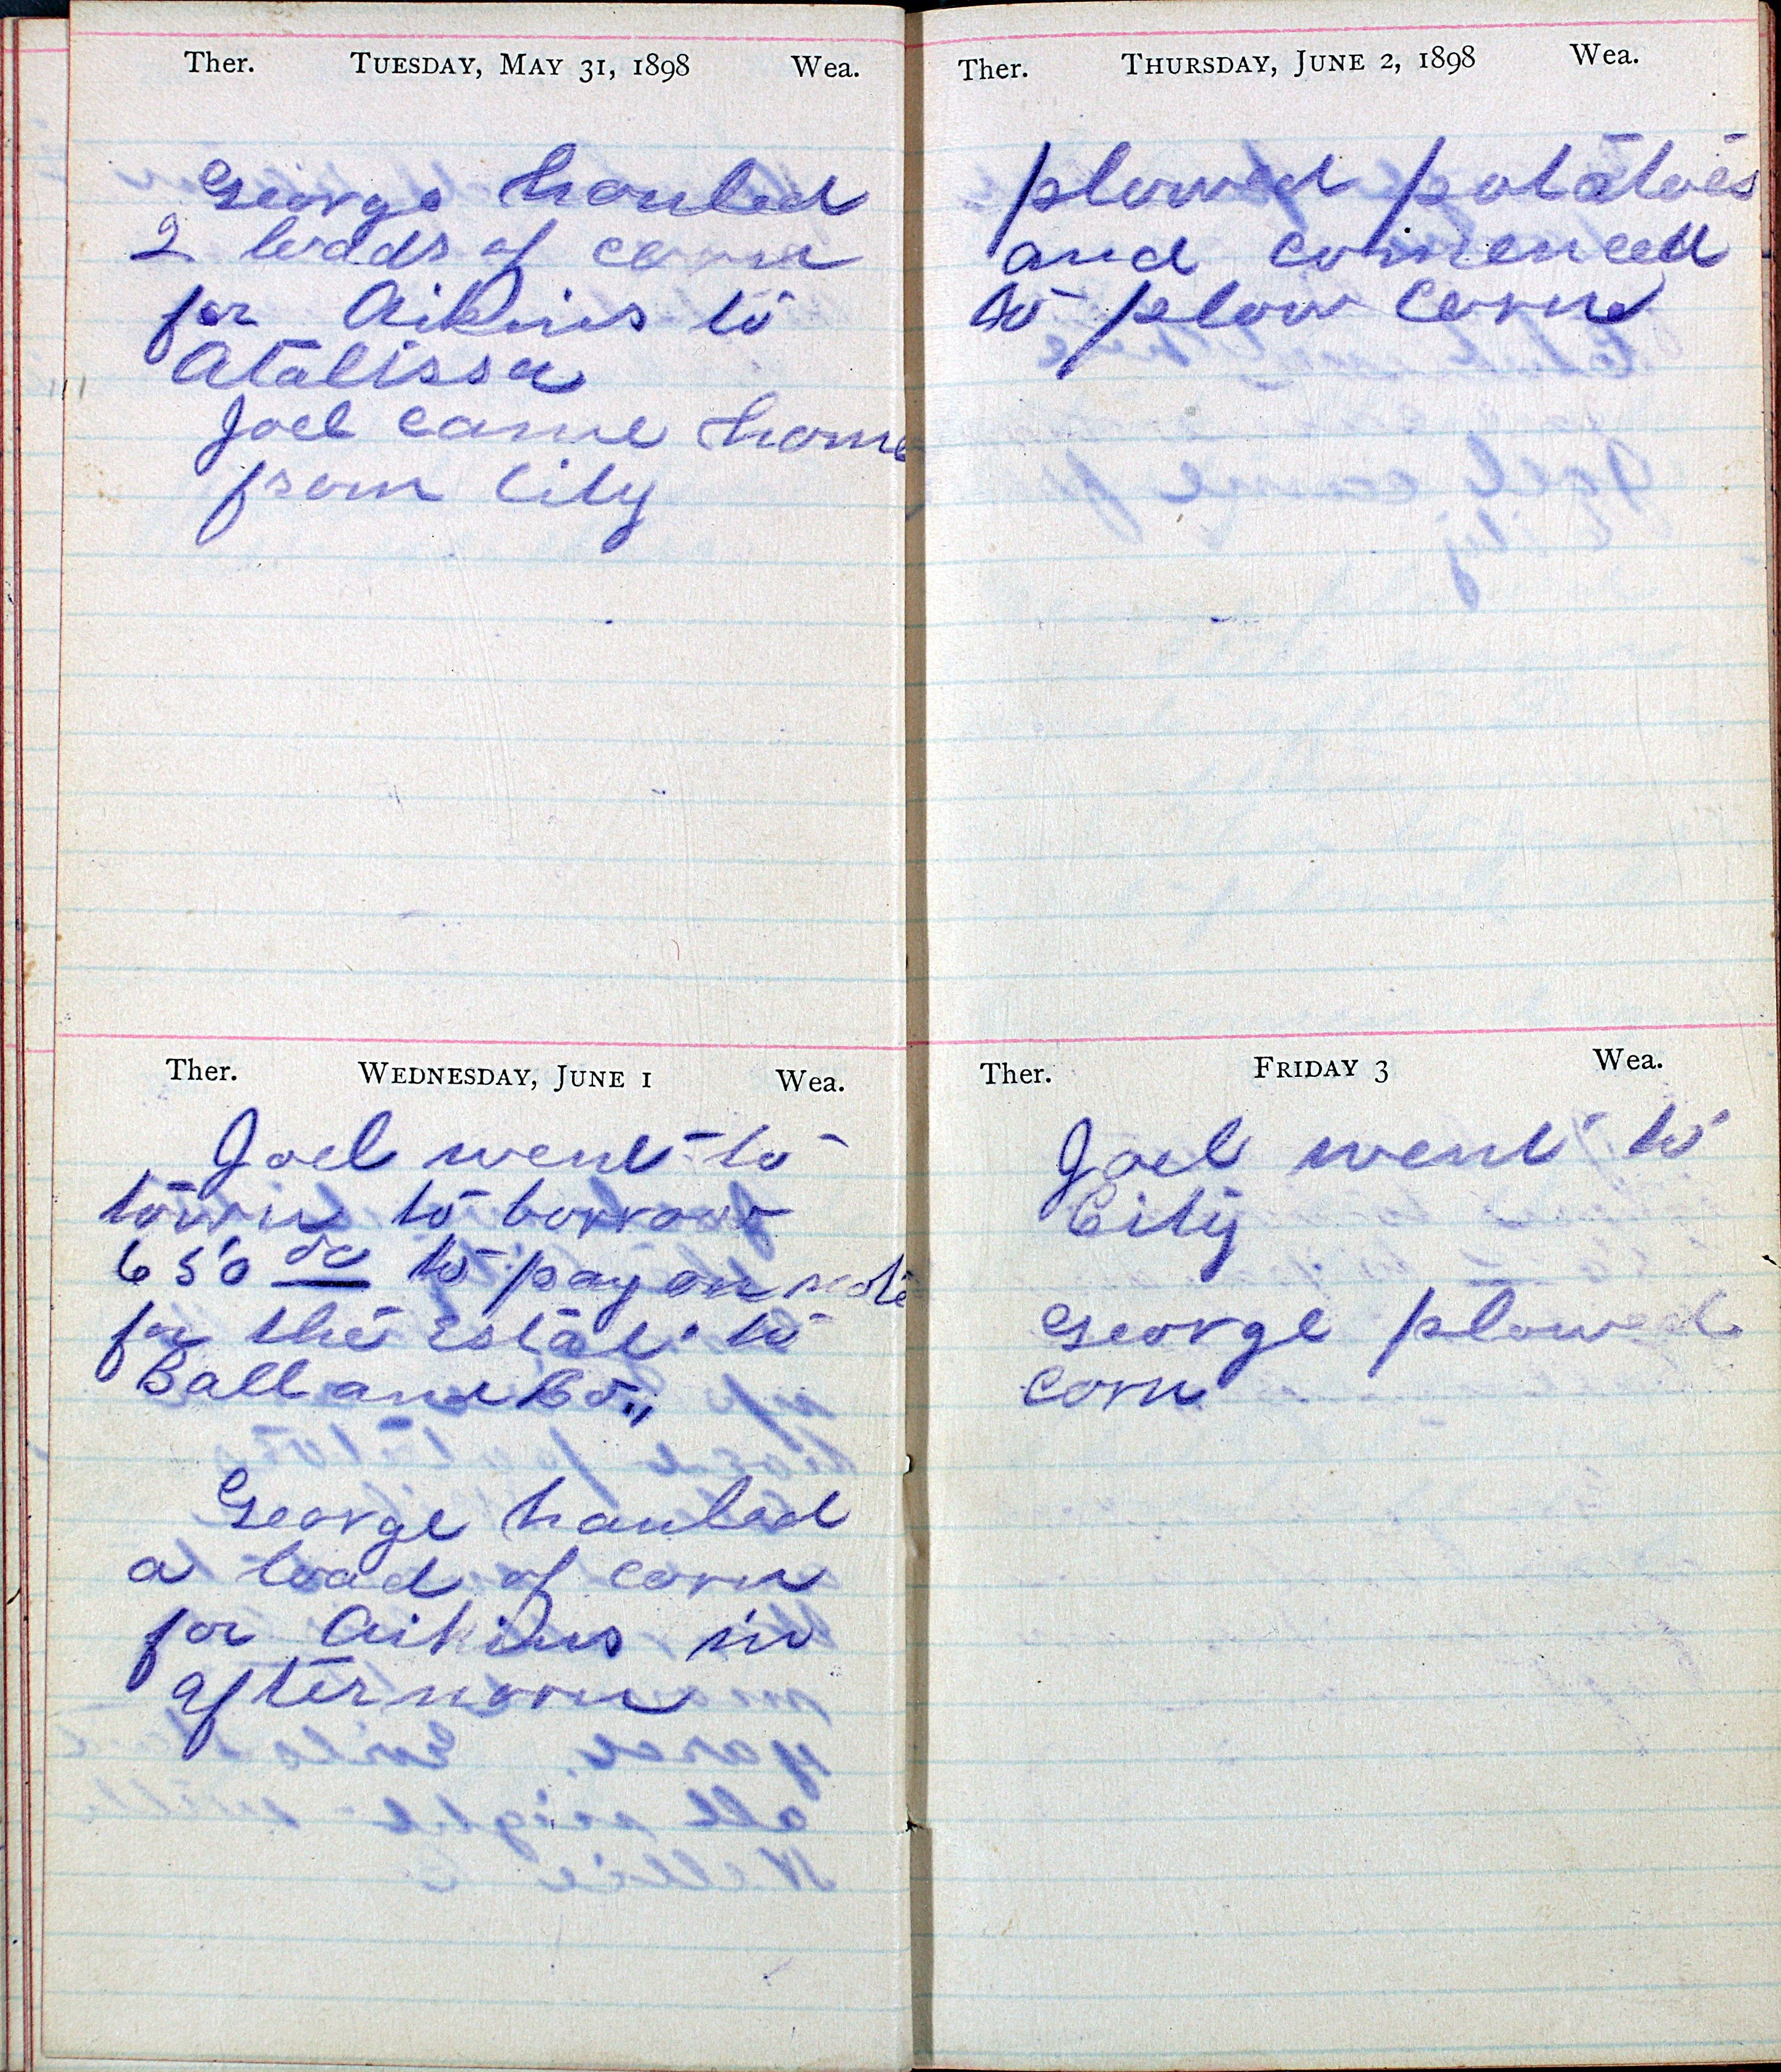 Ther. Tuesday, May 31, 1898 Wea.
George hauled
2 loads of corn
for Aikins to
Atalissa
Joel came home
from City
Ther. Wednesday, June 1 Wea.
Joel went to
town to borrow
650 00 to pay on note
for the Estate to
Ball and Co.,,
George hauled
a load of corn
for Aikins in
afternoon
Ther. Thursday, June 2, 1898 Wea.
plowed potatoes
and comenced
to plow corn
Ther. Friday 3 Wea.
Joel went to
City
George plowed
corn